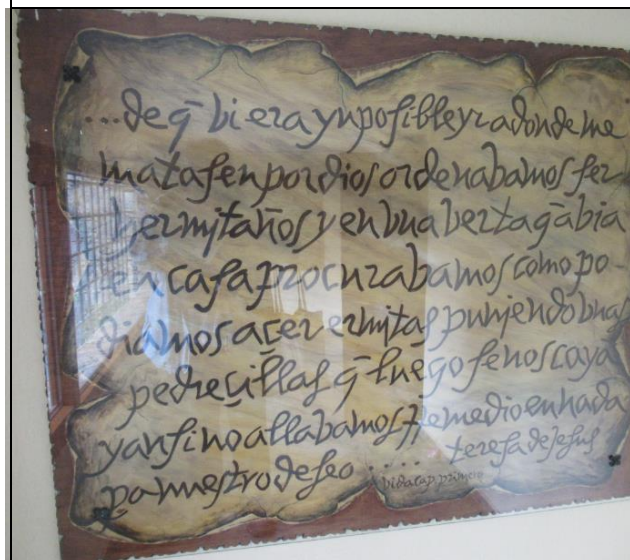 ...de q̄ bi era ynposible yr a donde me
matasen por dios ordenabamos ser
hermitaños y en una verta q̄ abia
en casa procurabamos como po-
diamos açer ermitas punjendo unas
pedreçillas q̄ luego se nos caya
y ansi no allabamos remedio en nada
pa nuestro deseo .... teresa de jesus
vida cap. primero